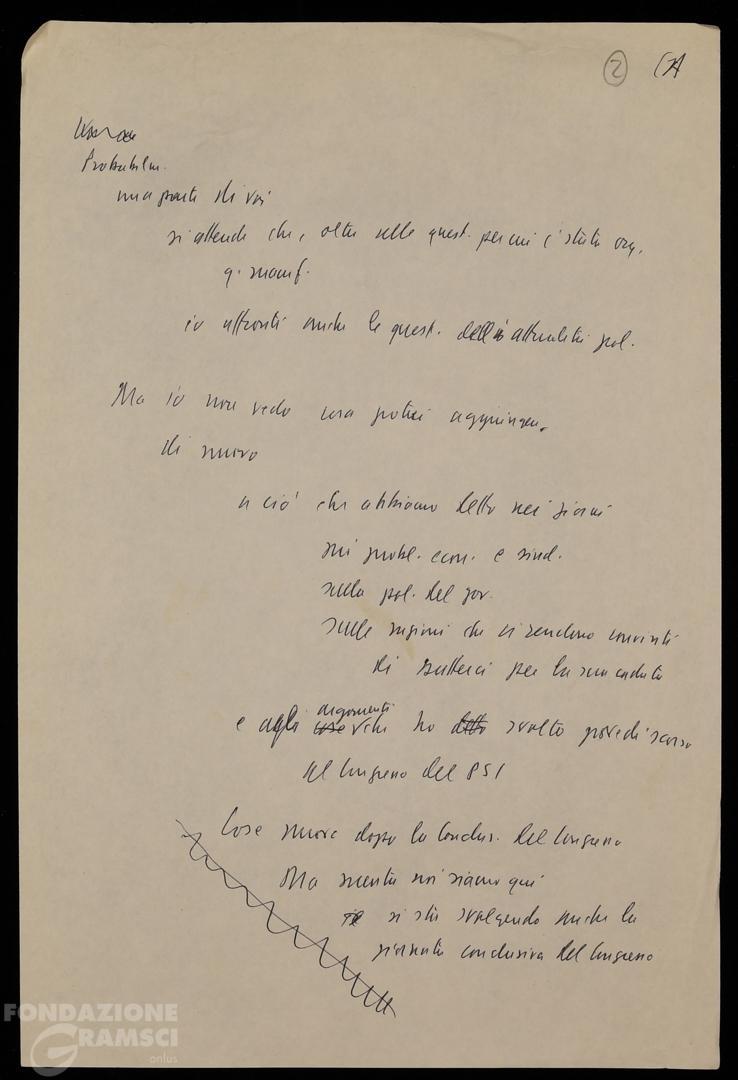 2
Probabilm.
una parte di voi
si attende che, oltre alle quest. per cui è stata org.
q. manif.
io affronti anche le quest. dell'attualità pol.
Ma io non vedo cosa potrei aggiungere
di nuovo
a ciò che abbiamo detto nei giorni
sui probl. econ. e sind.
sulla pol. del gov.
sulle ragioni che ci rendono convinti
di batterci per la sua caduta
argomenti
e agli cose che ho detto svolto giovedì scorso
al Congresso del PSI
Cose nuove dopo la conclus. del Congresso
Ma mentre noi siamo qui
si sta svolgendo anche la
giornata conclusiva del Congresso
FONDAZIONE
GRAMSCI
onlus